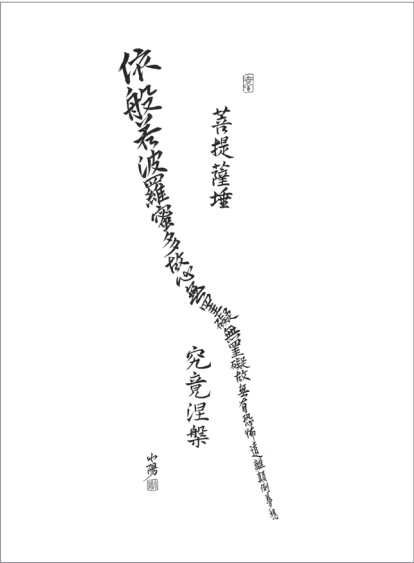 菩提薩埵
依般若波羅蜜多故心無罣礙無罣礙故無有恐怖遠離顛倒夢想
究竟涅槃